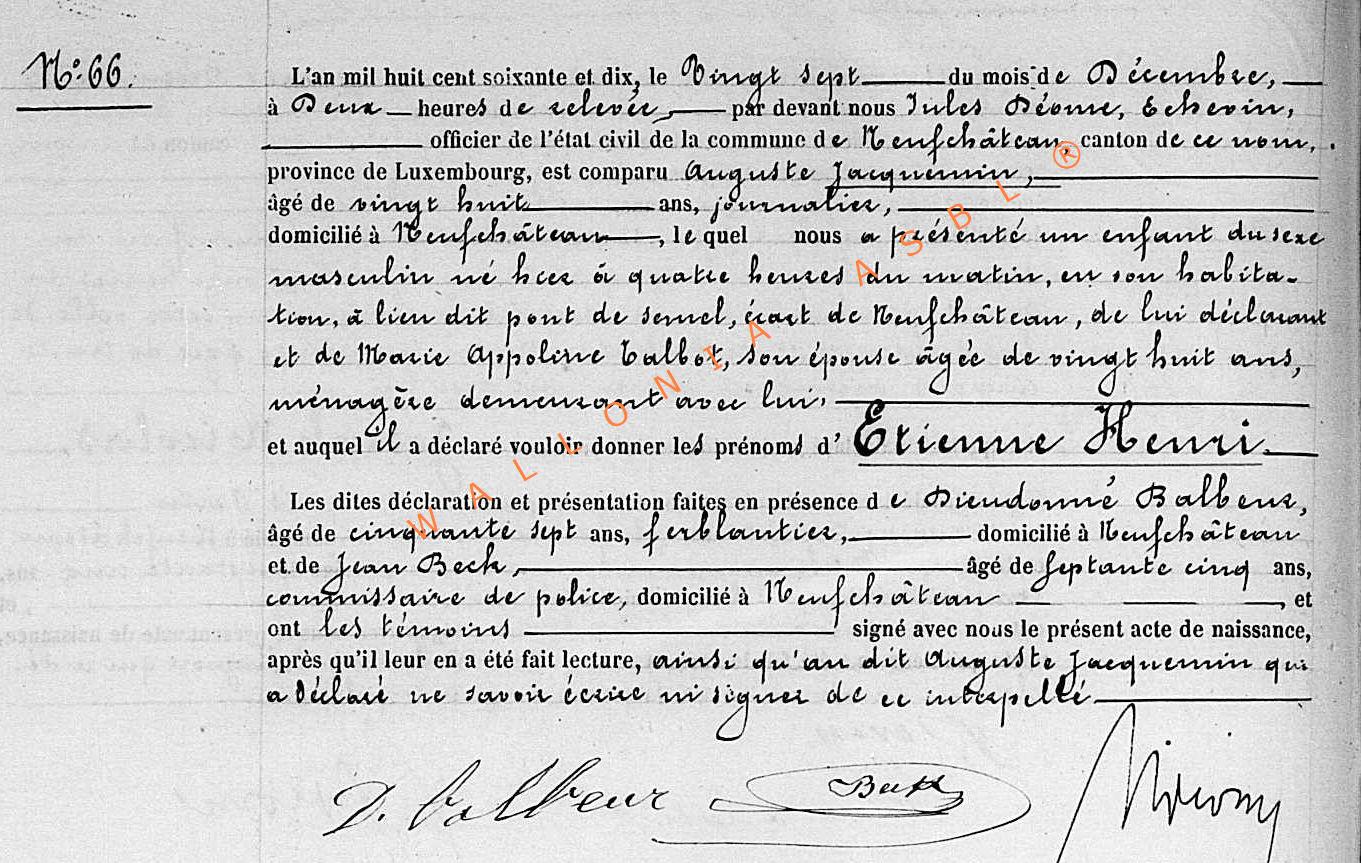 N° 66.
L'an mil huit cent soixante et dix, le Vingt sept du mois de Décembre,
à Deux heures de relevée, par devant nous Jules Déome, Echevin,
officier de l'état civil de la commune de Neufchâteau, canton de ce nom,
province de Luxembourg, est comparu Auguste Jacquemin,
âgé de vingt huit ans, journalier,
domicilié à Neufchâteau, le quel nous a présenté un enfant du sexe
masculin né hier à quatre heures du matin, en son habita-
tion, à lieu dit pont de semel, écart de Neufchâteau, de lui déclarant
et de Marie Appoline Talbot, son épouse âgée de vingt huit ans,
ménagère demeurant avec lui.
et auquel il a déclaré vouloir donner les prénoms d' Etienne Henri.
Les dites déclaration et présentation faites en présence de Dieudonné Balbeur,
âgé de cinquante sept ans, ferblantier, domicilié à Neufchâteau
et de Jean Beck, âgé de septante cinq ans,
commissaire de police, domicilié à Neufchâteau, et
ont les témoins signé avec nous le présent acte de naissance,
après qu'il leur en a été fait lecture, ainsi qu'au dit Auguste Jacquemin qui
a déclaré ne savoir écrire ni signer de ce interpellé
D. Balbeur Beck
WALLONIA ASBL ®